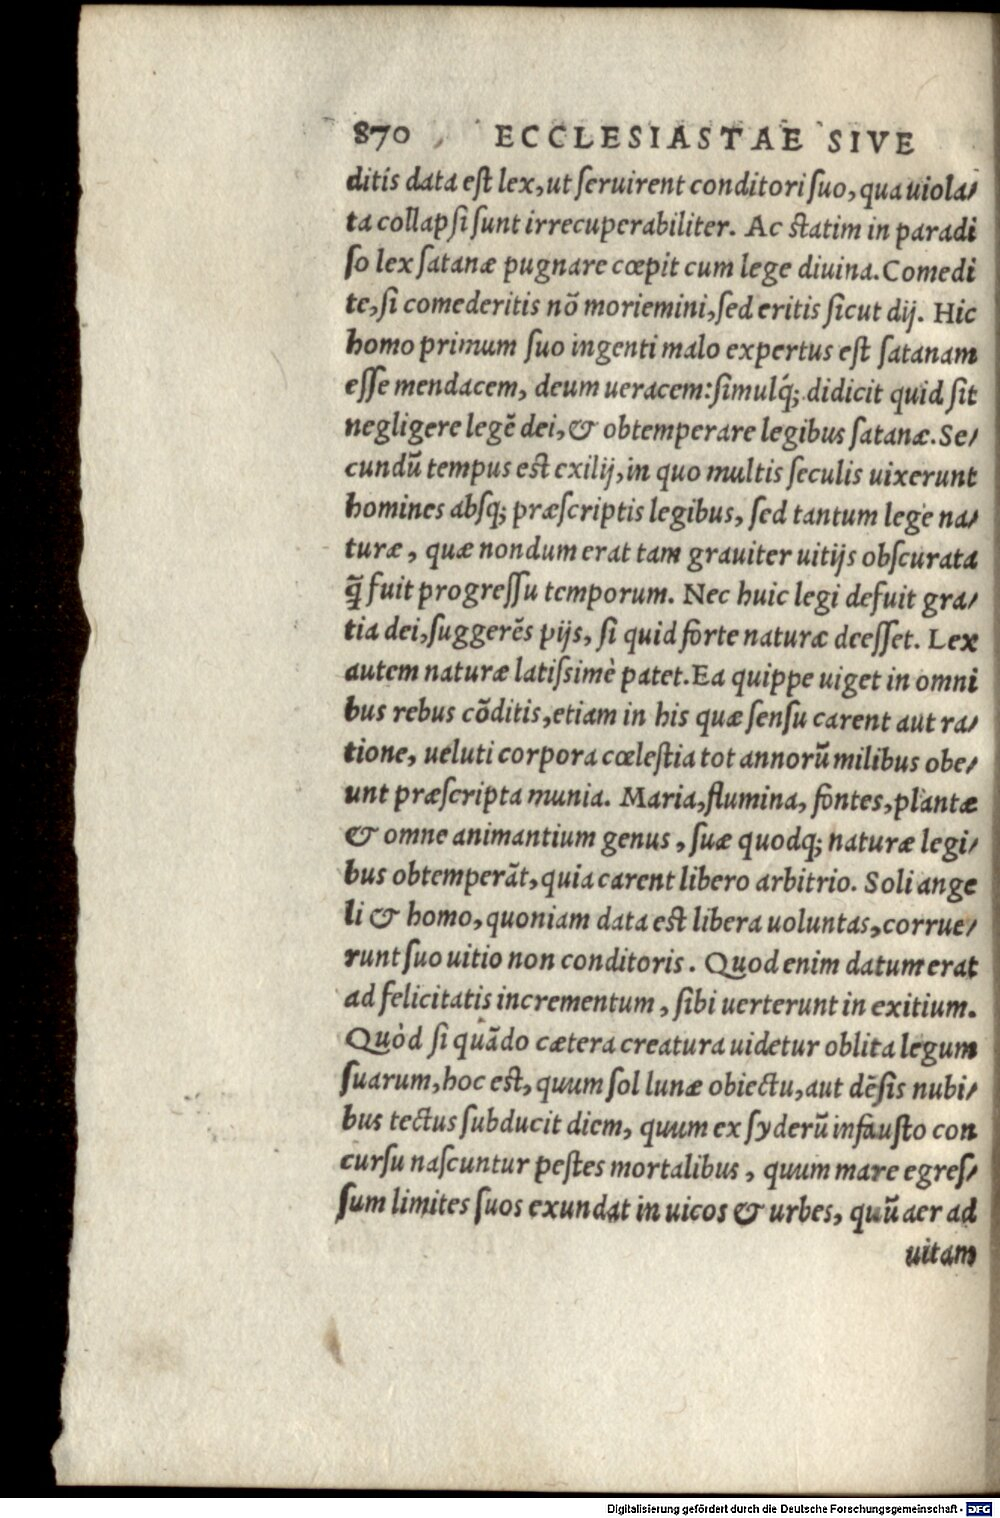 870 ECCLESIASTAE SIVE
ditis data eſt lex, ut ſeruirent conditori ſuo, qua uiola/
ta collapſi ſunt irrecuperabiliter. Ac ſtatim in paradi
ſo lex ſatanæ pugnare cœpit cum lege diuina. Comedi
te, ſi comederitis nō moriemini, ſed eritis ſicut dij. Hic
homo primum ſuo ingenti malo expertus eſt ſatanam
eſſe mendacem, deum ueracem: ſimulq́; didicit quid ſit
negligere legē dei, & obtemperare legibus ſatanæ. Se/
cundū tempus eſt exilij, in quo multis ſeculis uixerunt
homines abſq; præſcriptis legibus, ſed tantum lege na/
turæ, quæ nondum erat tam grauiter uitijs obſcurata
q̄ fuit progreſſu temporum. Nec huic legi defuit gra/
tia dei, ſuggerēs pijs, ſi quid forte naturæ deeſſet. Lex
autem naturæ latiſsimè patet. Ea quippe uiget in omni
bus rebus cōditis, etiam in his quæ ſenſu carent aut ra/
tione, ueluti corpora cœleſtia tot annorū milibus obe/
unt præſcripta munia. Maria, flumina, fontes, plantæ
& omne animantium genus, ſuæ quodq; naturæ legi/
bus obtemperāt, quia carent libero arbitrio. Soli ange
li & homo, quoniam data eſt libera uoluntas, corrue/
runt ſuo uitio non conditoris. Quod enim datum erat
ad felicitatis incrementum, ſibi uerterunt in exitium.
Quòd ſi quādo cætera creatura uidetur oblita legum
ſuarum, hoc eſt, quum ſol lunæ obiectu, aut dēſis nubi/
bus tectus ſubducit diem, quum ex ſyderū infauſto con
curſu naſcuntur peſtes mortalibus, quum mare egreſ/
ſum limites ſuos exundat in uicos & urbes, quū aer ad
uitam
Digitalisierung gefördert durch die Deutsche Forschungsgemeinschaft - DFG